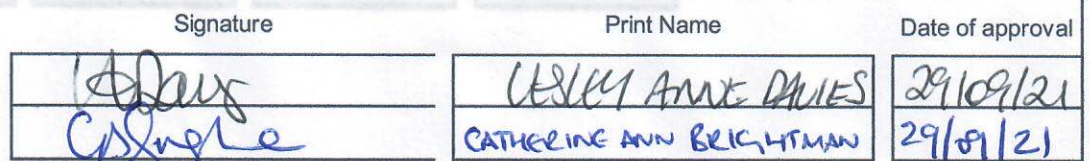 Signature Print Name Date of approval
LESLEY ANNE DAVIES 29/09/21
CATHERINE ANN BRIGHTMAN 29/09/21